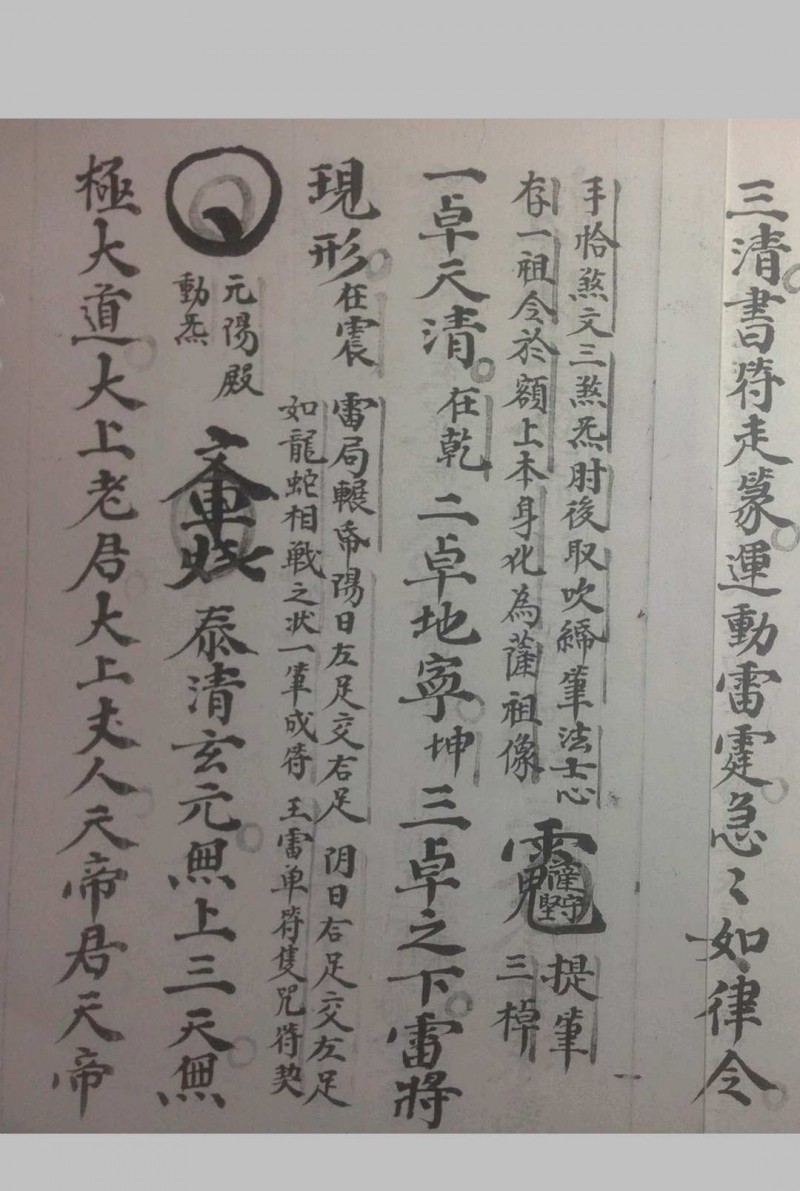 三清書符走篆運動雷霆急〻如律令
手恰煞文三煞炁肘後取吹締筆法士心
存一祖令於額上本身化為薩祖像
薩守堅
提筆
三棹
一卓天清在乾二卓地寧坤三卓之下雷將
現形在震
雷局輾帝陽日左足交右足阴日右足交左足
如龍蛇相戦之状一筆成符王雷单符隻咒符契
元陽殿
動炁
泰清玄元無上三天無
極大道大上老君大上丈人天帝君天帝